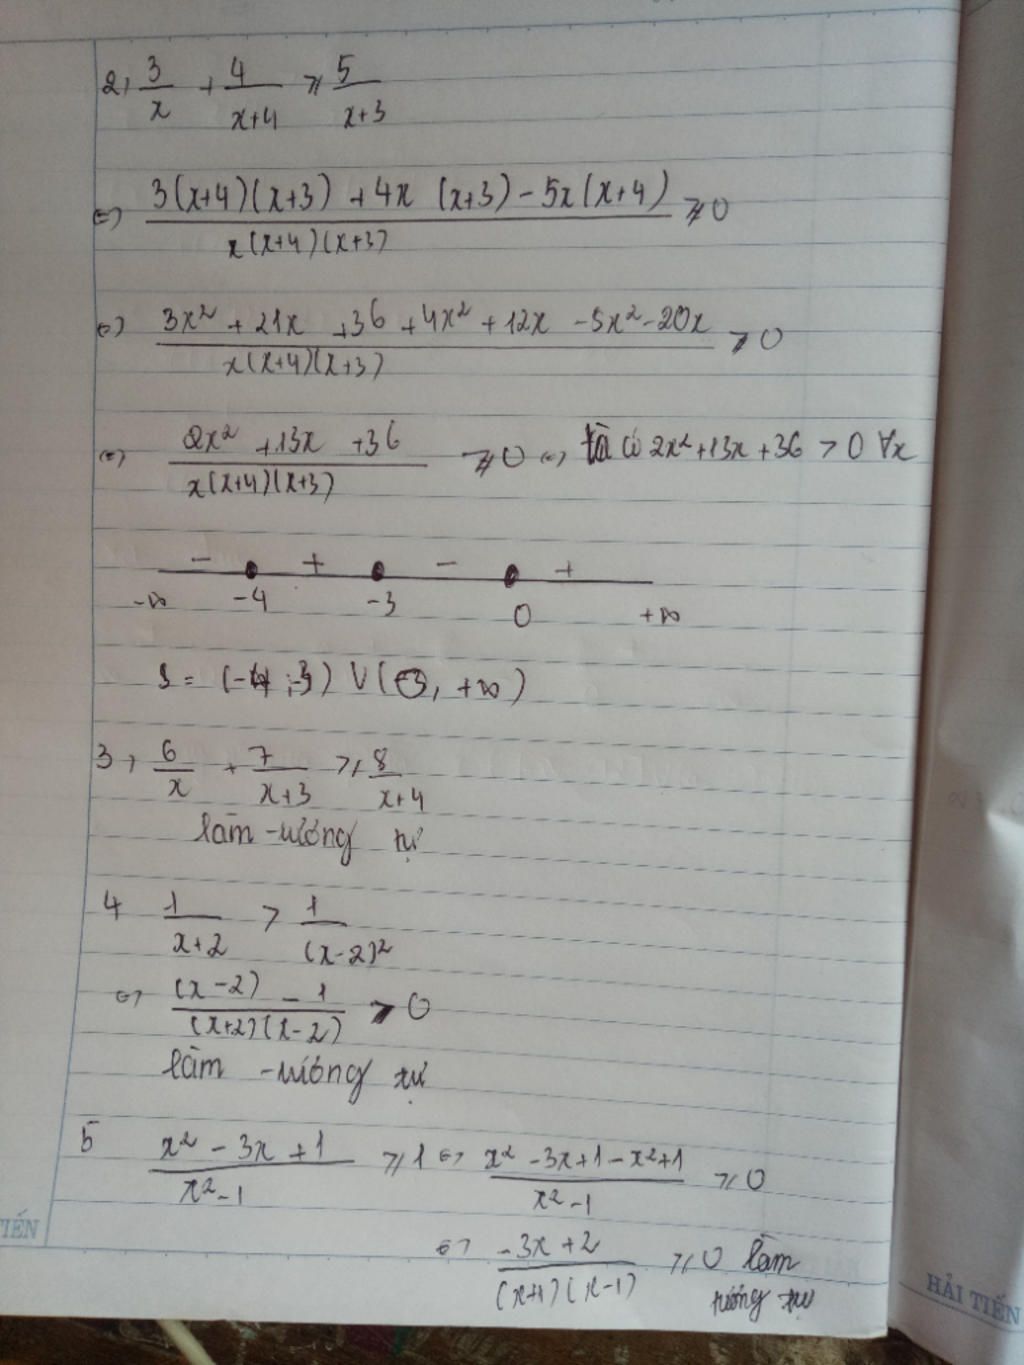 2, 3/x + 4/(x+4) ⩾ 5/(x+3)
⇔ (3(x+4)(x+3) + 4x (x+3) - 5x(x+4))/(x(x+4)(x+3)) ⩾ 0
⇔ (3x² + 21x + 36 + 4x² + 12x - 5x² - 20x)/(x(x+4)(x+3)) ⩾ 0
⇔ (2x² + 13x + 36)/(x(x+4)(x+3)) ⩾ 0 ⇔ ta có 2x² + 13x + 36 > 0 ∀x
- + - +
-∞ -4 -3 0 +∞
S = (-4 ; -3) ∪ ( , +∞)
3, 6/x + 7/(x+3) ⩾ 8/(x+4)
làm tương tự
4 1/(x+2) > 1/(x-2)²
⇔ ((x-2) - 1)/((x+2)(x-2)) > 0
làm tương tự
5 (x² - 3x + 1)/(x² - 1) ⩾ 1 ⇔ (x² - 3x + 1 - x² + 1)/(x² - 1) ⩾ 0
⇔ (-3x + 2)/((x+1)(x-1)) ⩾ 0 làm
tương tự
TIẾN
HẢI TIẾN